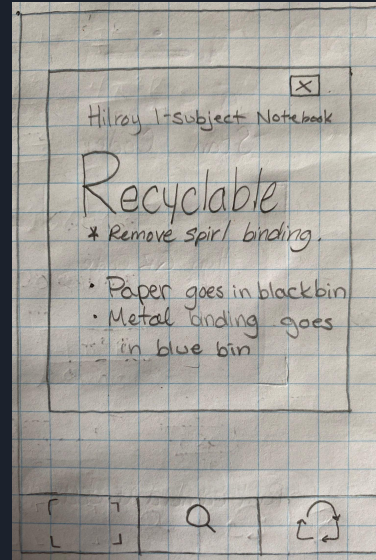 X
Hilroy 1-subject Notebook
Recyclable
* Remove spirl binding.
• Paper goes in black bin
• Metal binding goes
in blue bin